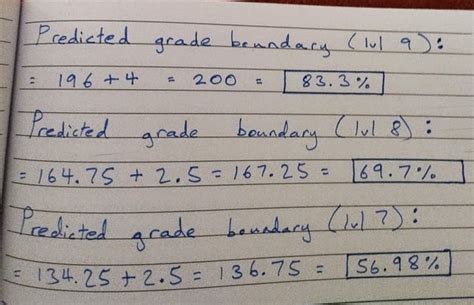 Predicted grade boundary (lvl 9):
= 196 + 4 = 200 = 83.3%
Predicted grade boundary (lvl 8):
= 164.75 + 2.5 = 167.25 = 69.7%
Predicted grade boundary (lvl 7):
= 134.25 + 2.5 = 136.75 = 56.98%